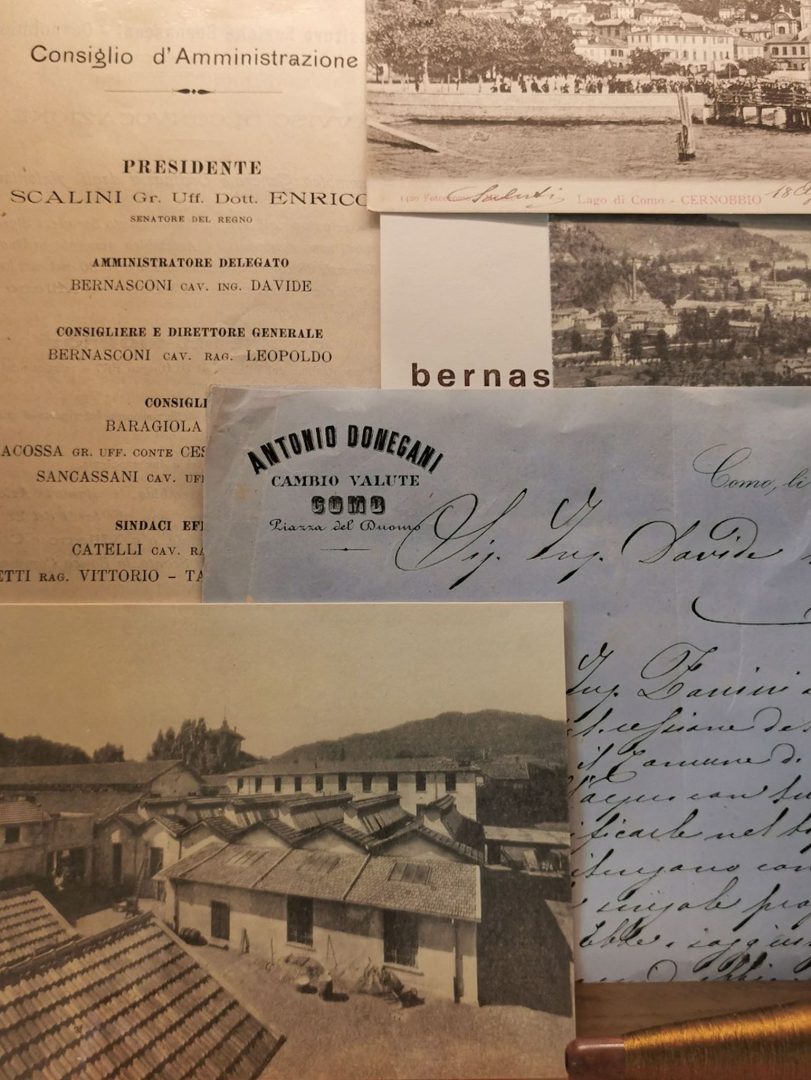 Consiglio d'Amministrazione
PRESIDENTE
SCALINI Gr. Uff. Dott. ENRICO
SENATORE DEL REGNO
AMMINISTRATORE DELEGATO
BERNASCONI CAV. ING. DAVIDE
CONSIGLIERE E DIRETTORE GENERALE
BERNASCONI CAV. RAG. LEOPOLDO
CONSIGLI
BARAGIOLA
ACOSSA GR. UFF. CONTE CES
SANCASSANI CAV. UFF
SINDACI EFF
CATELLI CAV. RA
ETTI RAG. VITTORIO - TA
Saluti Lago di Como - CERNOBBIO
bernas
ANTONIO DONEGANI
CAMBIO VALUTE
COMO
Piazza del Duomo
Como, li
Sig. Ing. Davide
Ing.
cessione de
il Comune di
acqua con
ificarle nel
tengano con
singole